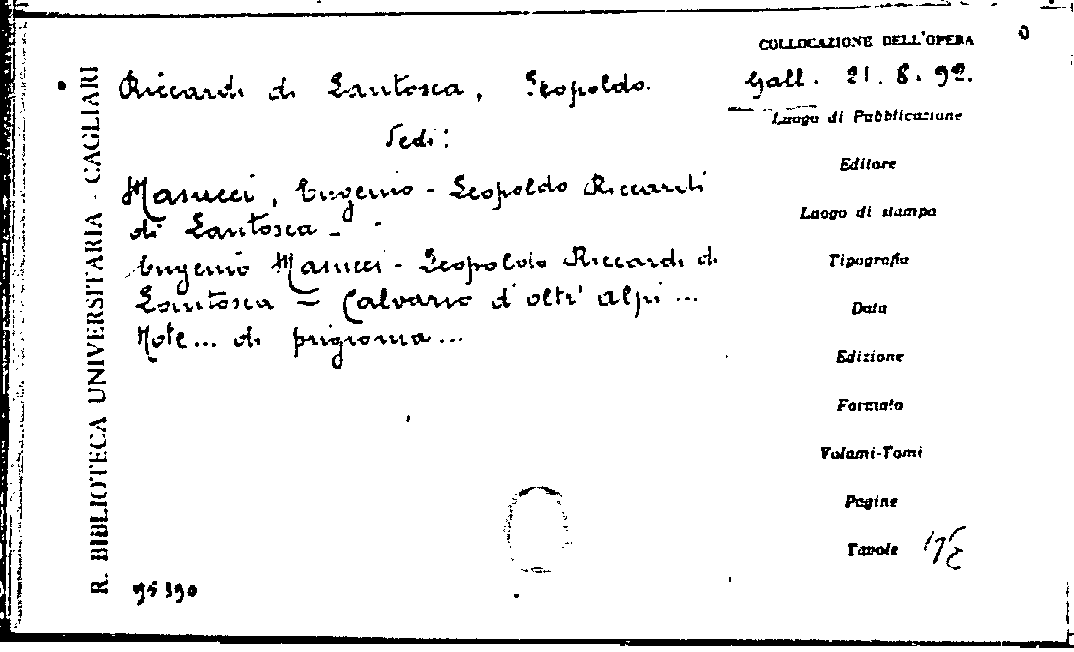 COLLOCAZIONE DELL'OPERA
Riccardi di Lantosca, Leopoldo.
Gall. 21. 8. 92.
Vedi:
Masucci, Eugenio - Leopoldo Riccardi
di Lantosca -
Eugenio Masucci - Leopoldo Riccardi di
Lantosca = Calvario d'oltr'alpi ...
Note... di prigionia...
Luogo di Pubblicazione
Editore
Luogo di stampa
Tipografia
Data
Edizione
Formato
Volumi-Tomi
Pagine
Tavole
95390
R. BIBLIOTECA UNIVERSITARIA - CAGLIARI